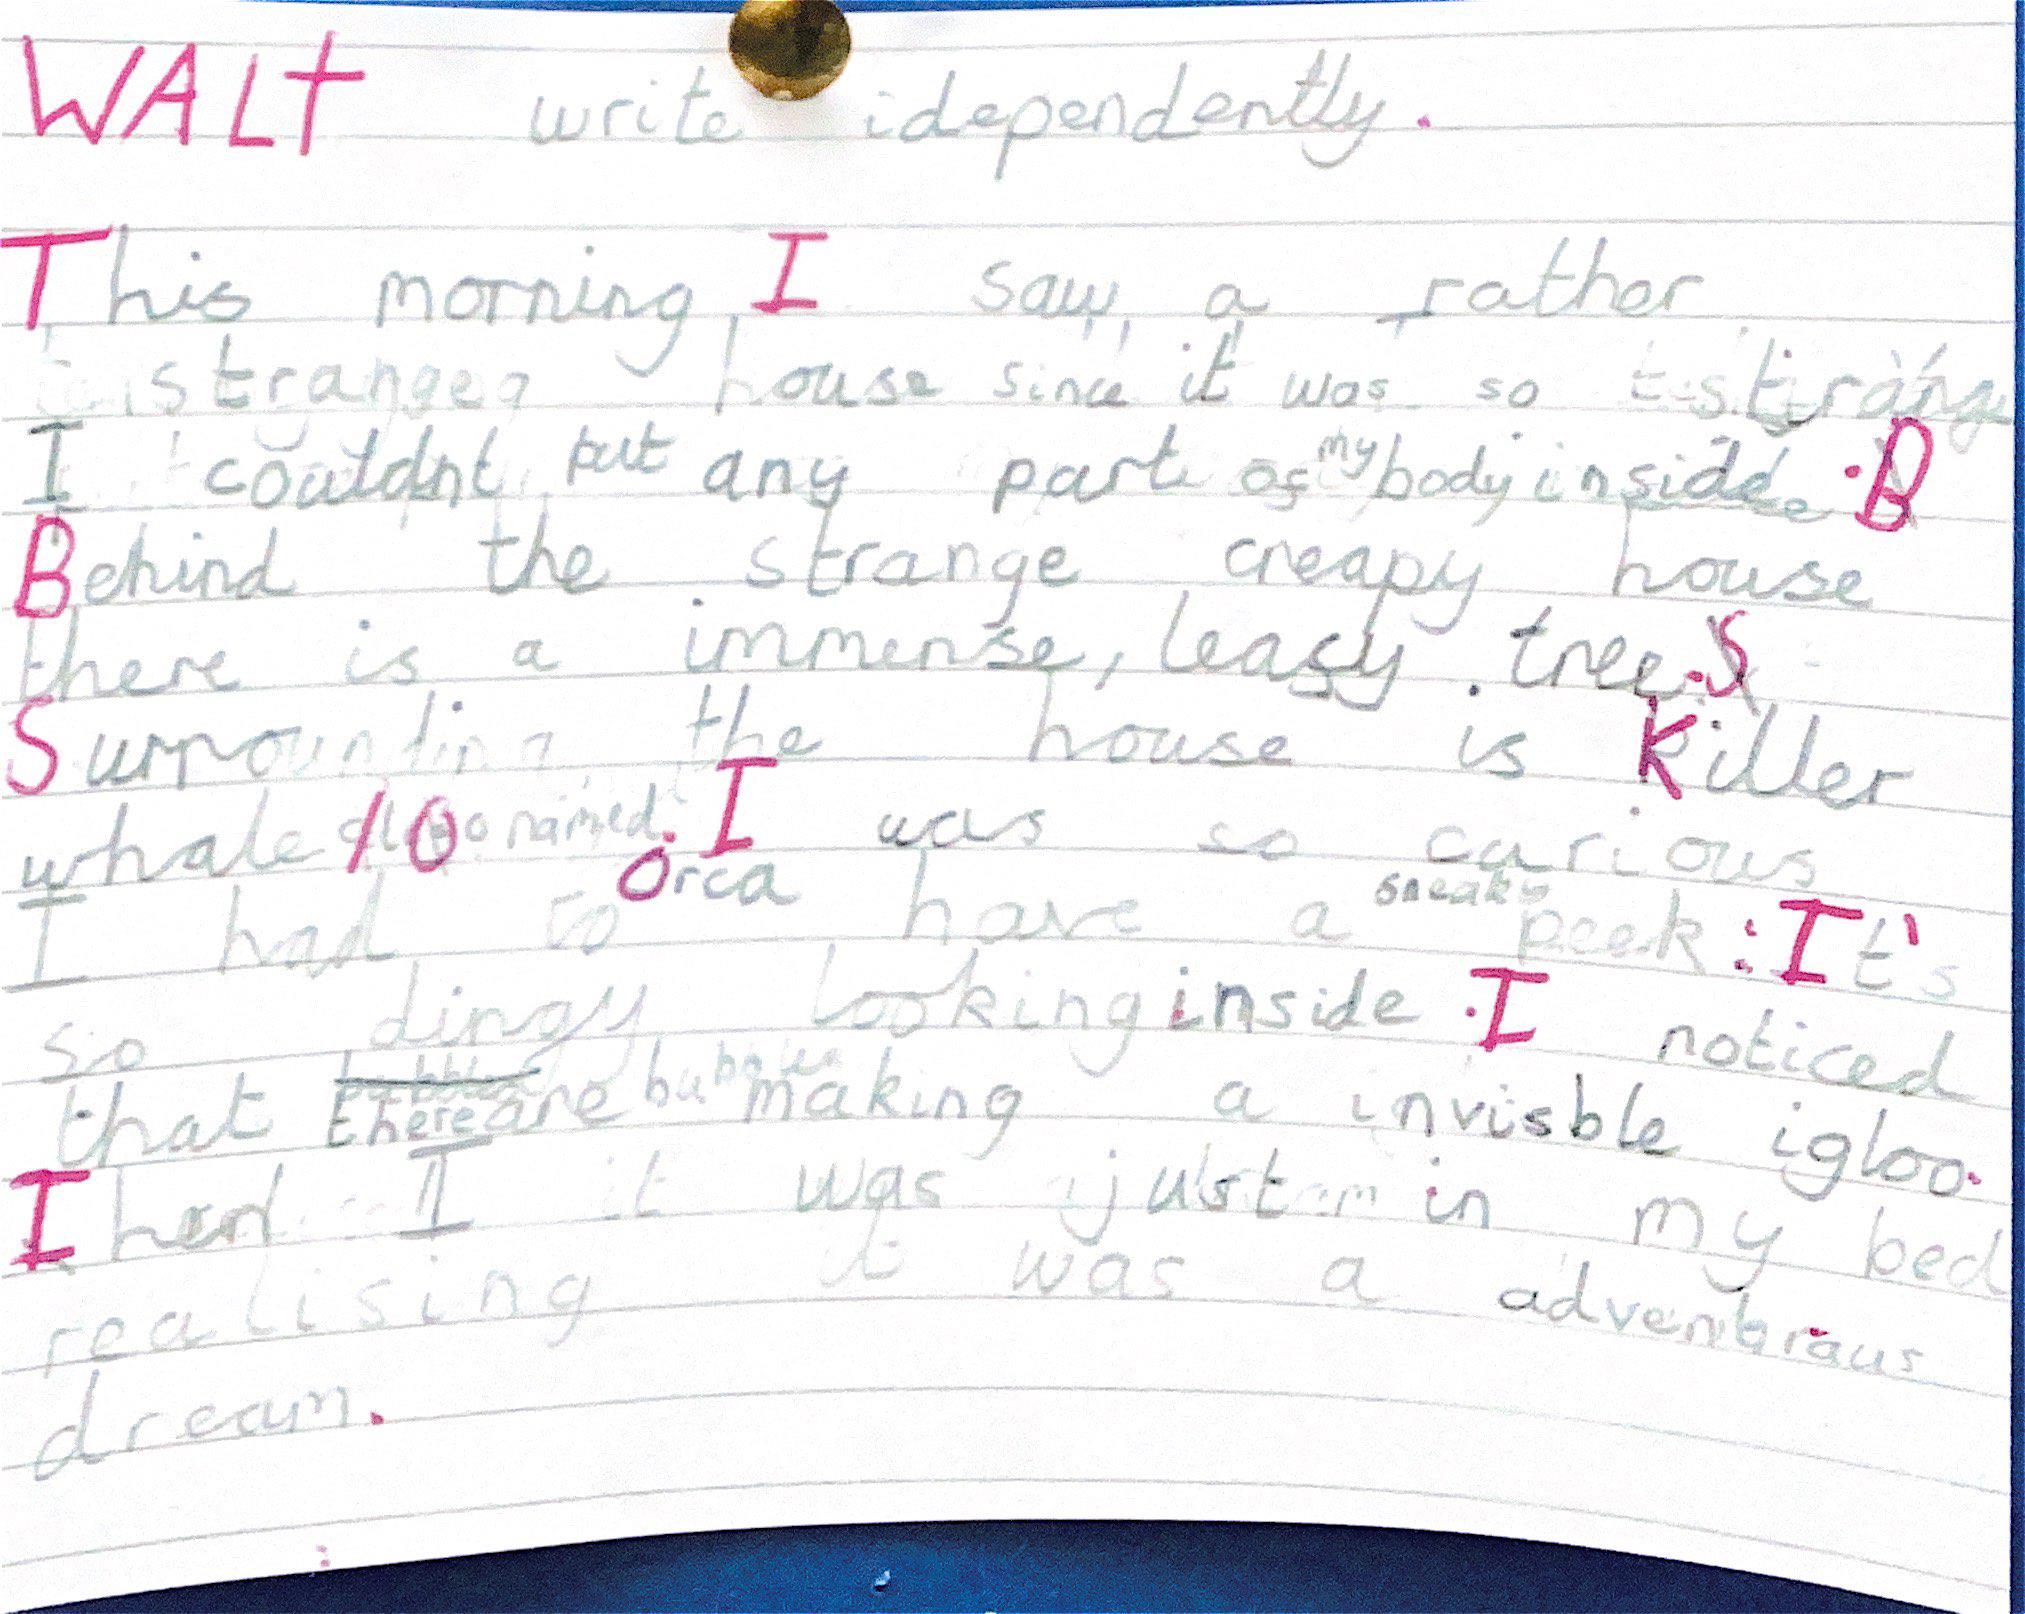 WALT write idependently.
This morning I saw a rather
house since it was so strange
I couldnt put any part of my body inside . B
Behind the strange creapy house
there is a immense, leafy . tree. S
Surrounding the house is Killer
whale / O named. I was so curious
Orca
I had to have a sneaky peek : It's
so dingy looking inside . I noticed
that there are bubbles making a invisble igloo.
I I it was just in my bed
realising it was a
dream.